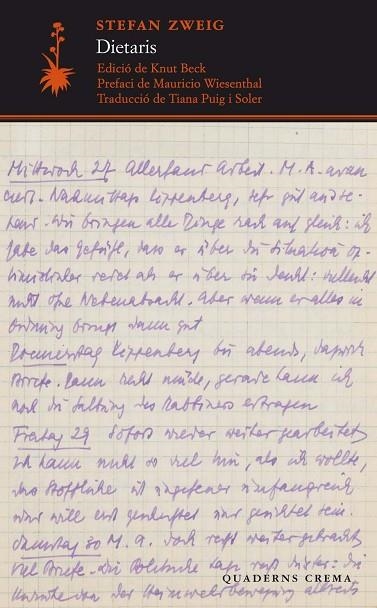 STEFAN ZWEIG
Dietaris
Edició de Knut Beck
Prefaci de Mauricio Wiesenthal
Traducció de Tiana Puig i Soler
Mittwoch 27 Allerhand Arbeit. M. A. avan
ciert. Nachmittags Kippenberg, sehr gut
Wir bringen alle Dinge rasch auf gleich: ich
habe das Gefühl, dass er über die Situation op-
timistischer redet als er über sie denkt: vielleicht
nicht ohne Nebenabsicht. Aber wenn er alles in
Ordnung bringt dann gut
Donnerstag Kippenberg bis abends, dazwisch
Briefe. Dann recht müde, gerade kann ich
noch die des Rabbiners ertragen
Freitag 29 Sofort wieder weiter gearbeitet
Ich kann nicht so viel tun, als ich wollte,
das Stoffliche ist ungeheuer umfangreich
und will erst und gesichtet sein.
Samstag 30 M. A. doch recht weiter gebracht
Viel Briefe. Die Politische Lage recht düster: die
der Heimwehrbewegung
QUADERNS CREMA